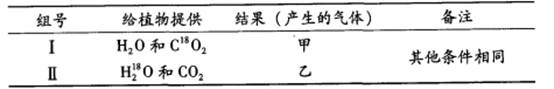 组号 给植物提供 结果（产生的气体） 备注
Ⅰ H₂O 和 C¹⁸O₂ 甲 其他条件相同
Ⅱ H₂¹⁸O 和 CO₂ 乙